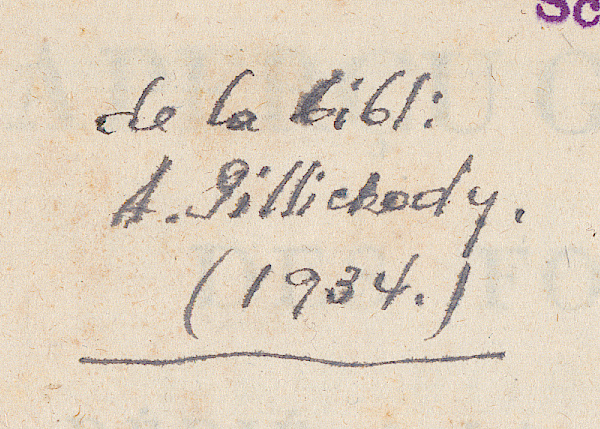 Sc
de la bibli:
A. Gillichody.
(1934.)